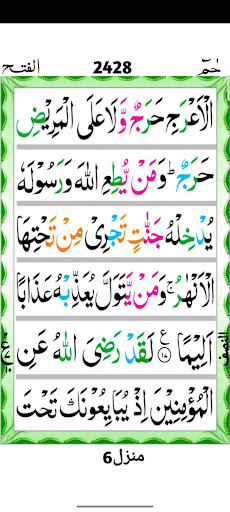 حٰمٓ 2428 الفتح
الْاَعْرَجِ حَرَجٌ وَّلَا عَلَى الْمَرِيْضِ
حَرَجٌ ؕ وَمَنْ يُّطِعِ اللّٰهَ وَرَسُوْلَهٗ
يُدْخِلْهُ جَنّٰتٍ تَجْرِىْ مِنْ تَحْتِهَا
الْاَنْهٰرُ ۚ وَمَنْ يَّتَوَلَّ يُعَذِّبْهُ عَذَابًا
اَلِيْمًا ﴿۱۷﴾ ع لَقَدْ رَضِىَ اللّٰهُ عَنِ
الْمُؤْمِنِيْنَ اِذْ يُبَايِعُوْنَكَ تَحْتَ
منزل6